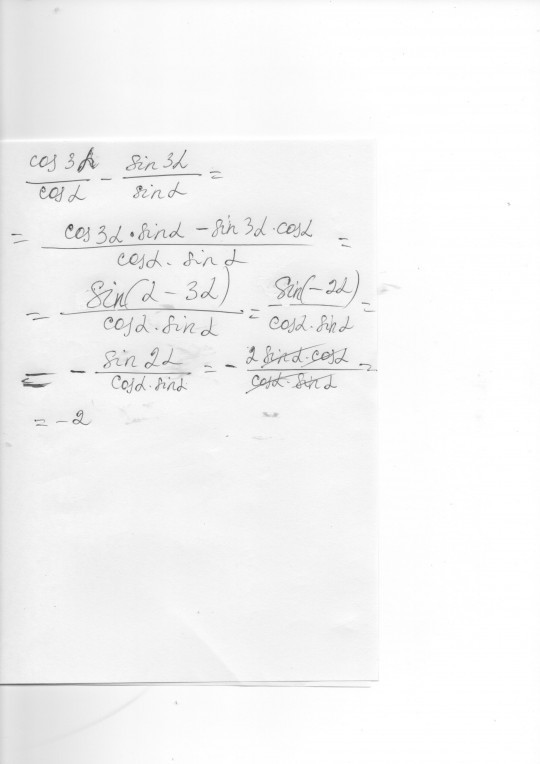 cos 3α/cos α - sin 3α/sin α =
= (cos 3α · sin α - sin 3α · cos α)/(cos α · sin α) =
= sin(α - 3α)/(cos α · sin α) = sin(-2α)/(cos α · sin α) =
= - sin 2α/(cos α · sin α) = - 2 sin α · cos α/(cos α · sin α) =
= -2